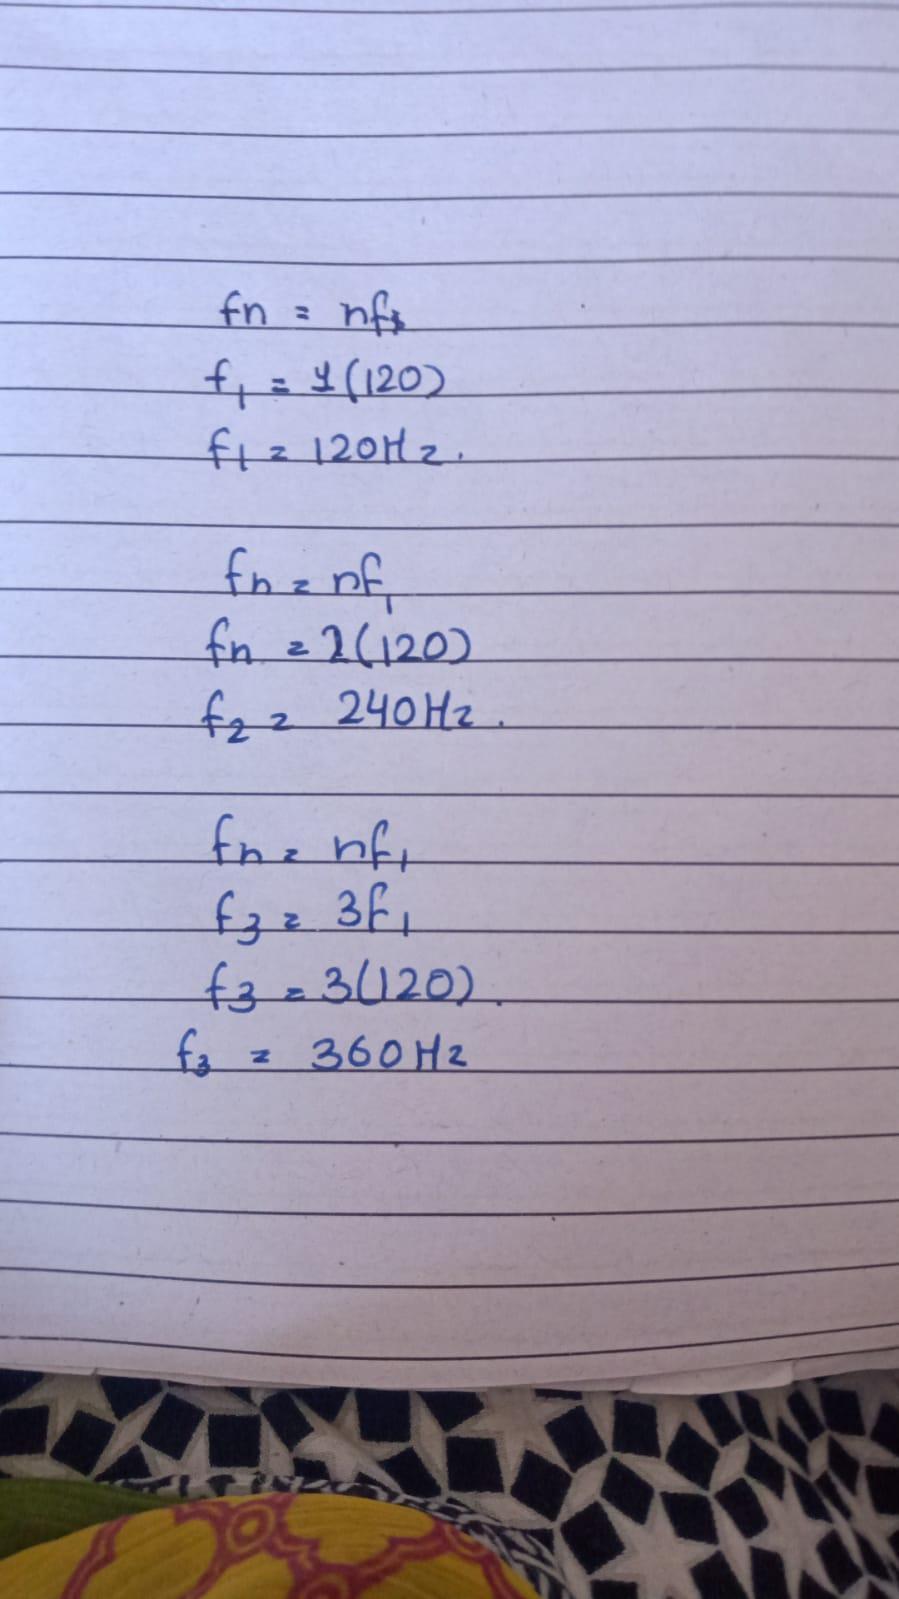 fn = nf1
f1 = 1(120)
f1 = 120Hz.
fn = nf1
fn = 2(120)
f2 = 240Hz.
fn = nf1
f3 = 3f1
f3 = 3(120).
f3 = 360Hz